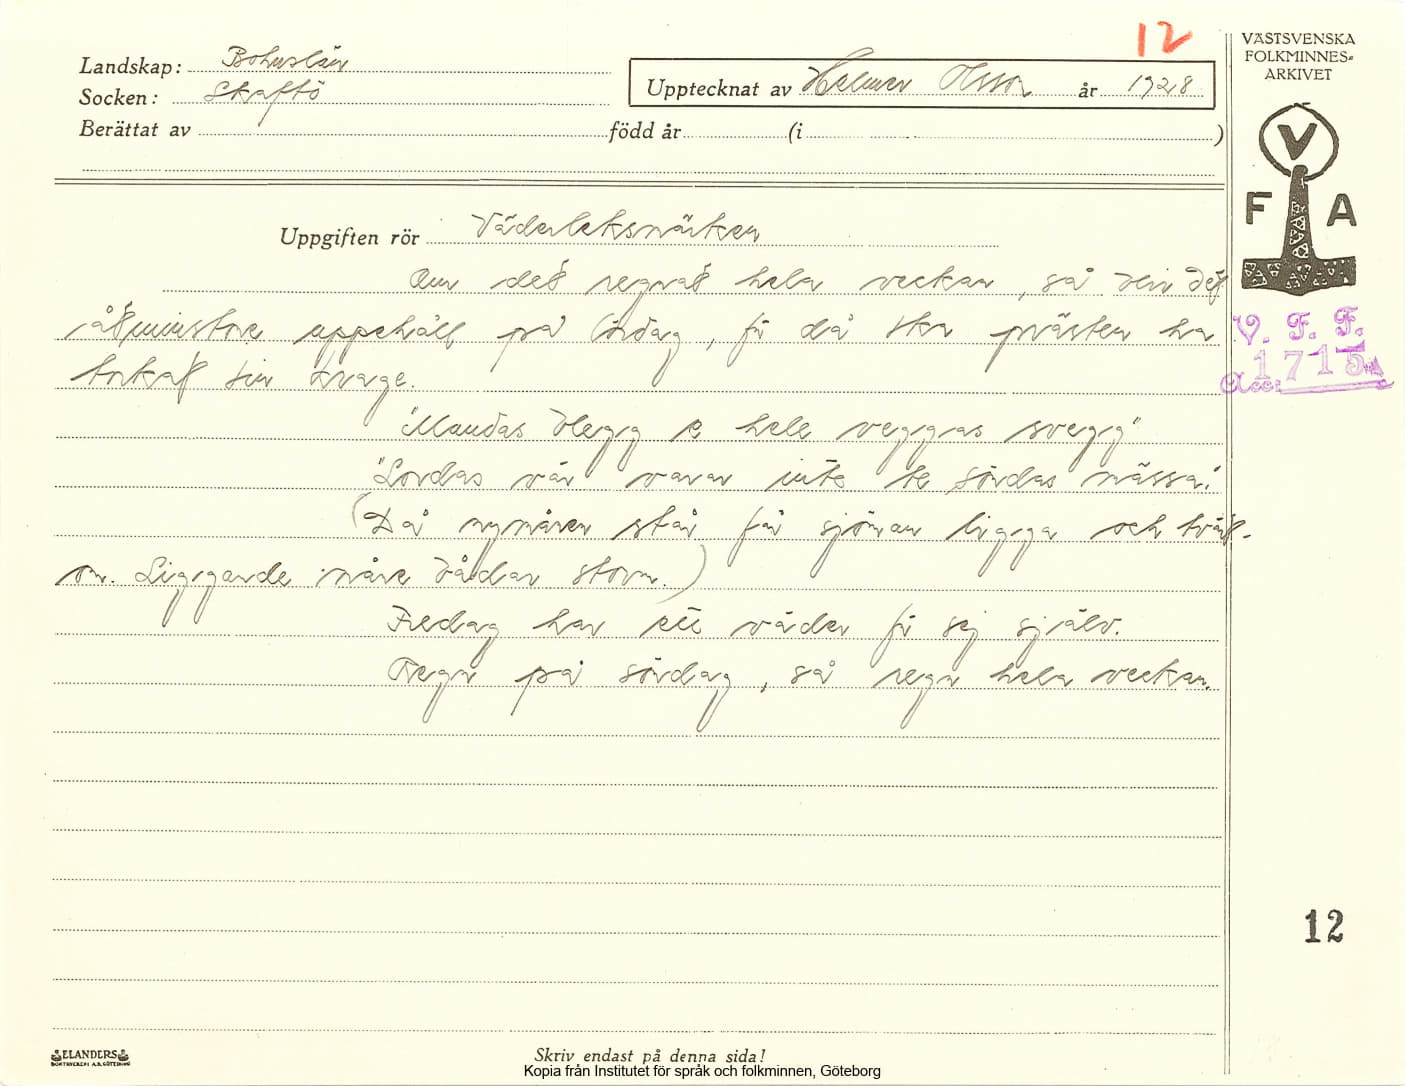 12
VÄSTSVENSKA
FOLKMINNES=
ARKIVET
Landskap: Bohuslän
Socken: Skaftö
Upptecknat av Helmer Olsson år 1928
Berättat av född år (i )
V
F A
Uppgiften rör Väderleksmärken
Om det regnat hela veckan, så blir det
åtminstone uppehåll på lördag, för då ska prästen ha
torkat sin krage.
"Mandas blegg e hele veggas svegg"
"Lordas vär varar inte te söndas mässa."
(Då nymånen står får sjöman ligga och tvärt-
om. Liggande måne bådar storm.)
Fredag har ett väder för sej själv.
Regn på söndag, så regn hela veckan.
V. F. F.
Acc: 1715
12
ELANDERS
BOKTRYCKERI A.B. GÖTEBORG
Skriv endast på denna sida!
Kopia från Institutet för språk och folkminnen, Göteborg